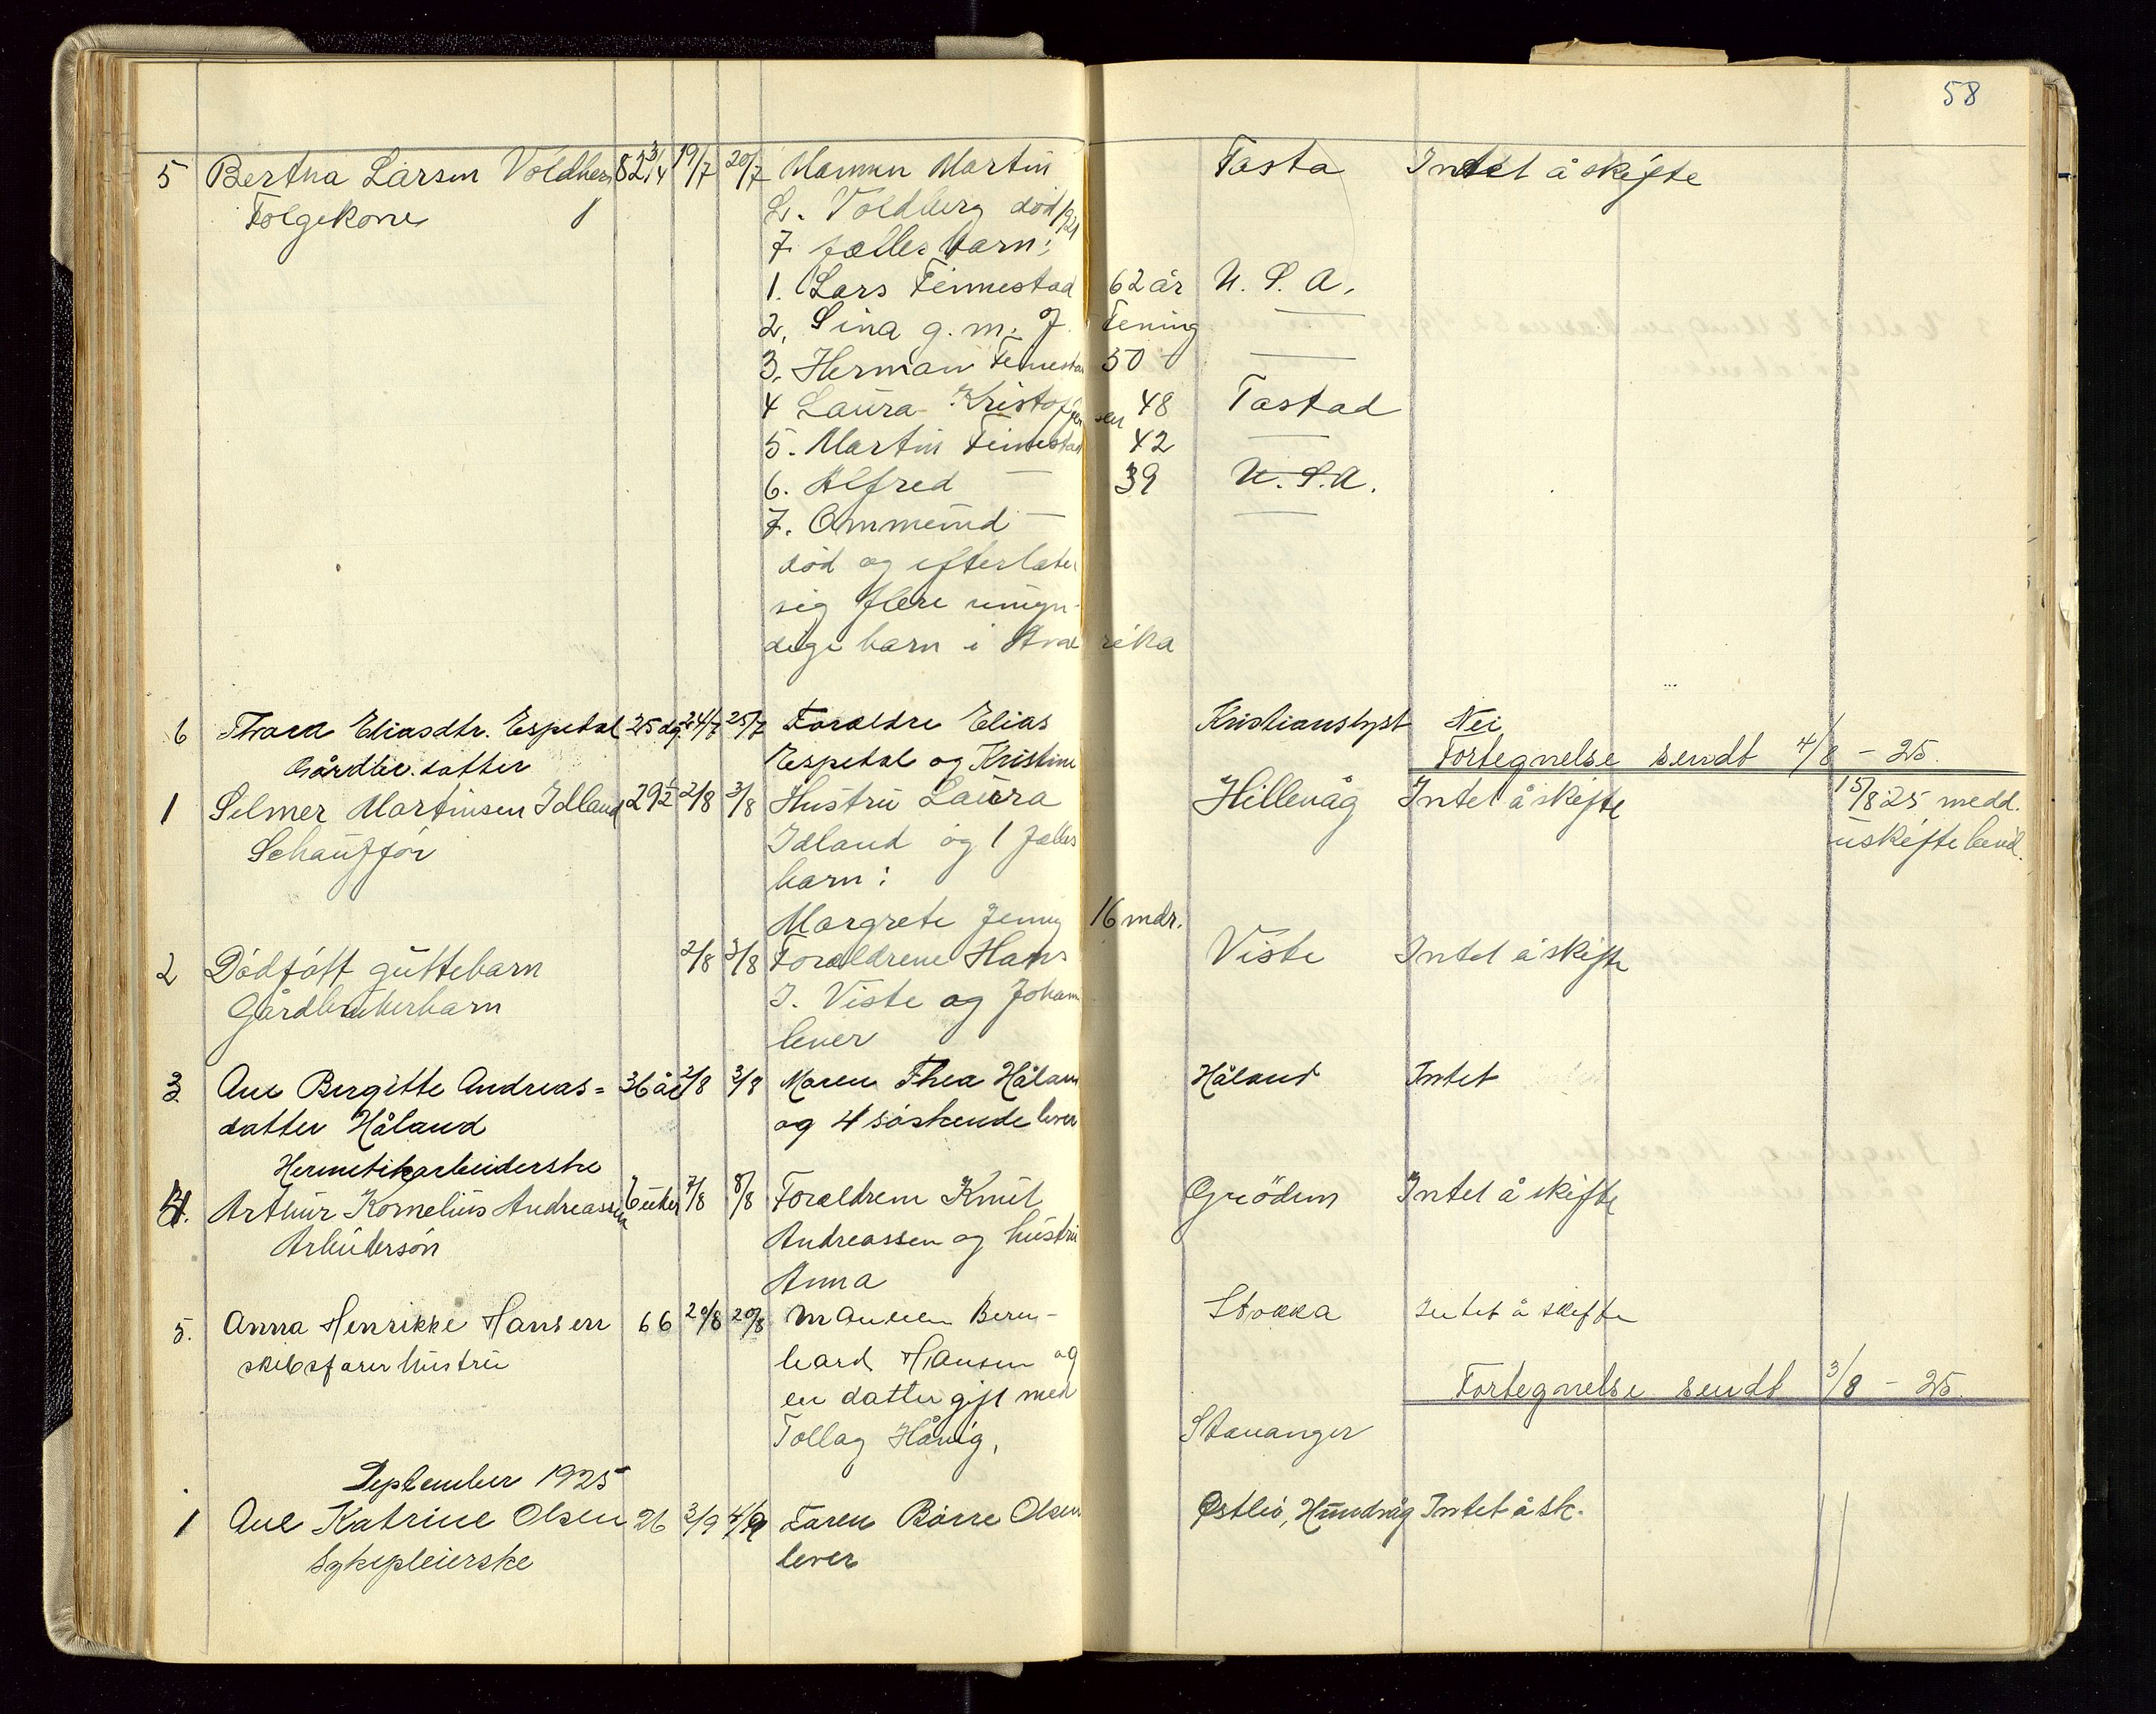 58
5 Bertha Larsen Voldberg 82 3/4 19/7 20/7 Mannen Martin Tasta Intet å skifte
Følgekone L. Voldberg død 1921
7 fælles barn:
1. Lars Finnestad 62 år U. S. A.
2. Sina g. m. J. Tening —
3. Herman Finnestad 50 —
4 Laura Kristoffersen 48 Tastad
5. Martin Finnestad 42 —
6. Alfred — 39 U. S. A.
7. Ommund — —
død og efterlater
sig flere umyn-
dige barn i Amerika
6 Thora Eliasdtr. Espedal 25 dg. 24/7 25/7 Foreldre Elias Kristianslyst Nei
Gårdbr. datter Espedal og Kristine Fortegnelse sendt 4/8 - 25.
1 Selmer Martinsen Idland 29 1/2 2/8 3/8 Hustru Laura Hillevåg Intet å skifte 15/8 25 medd.
Schauffør Idland og 1 fælles uskiftebevil.
barn:
Margrete Jenny 16 mdr.
2 Dødfødt guttebarn 2/8 3/8 Foreldrene Hans Viste Intet å skifte
Gårdbrukerbarn J. Viste og Johanne
lever
3 Ane Bergitte Andreas= 36 år 2/8 3/8 Moren Thea Håland Håland Intet
datter Håland og 4 søskende lever
Hermetikarbeiderske
4. Arthur Kornelius Andreassen 6 uker 7/8 8/8 Foreldrene Knut Grödem Intet å skifte
Arbeidersön Andreassen og hustru
Anna
5. Anna Henrikke Hansen 66 20/8 20/8 Mannen Bern- Stokka Intet å skifte
skibsfører hustru hard Hansen og
en datter gift med Fortegnelse sendt 3/8 - 25.
Tollag Håvig, Stavanger
September 1925
1 Ane Katrine Olsen 26 3/9 4/9 Faren Börre Olsen Østlio, Hundvåg Intet å sk.
Sykepleierske lever